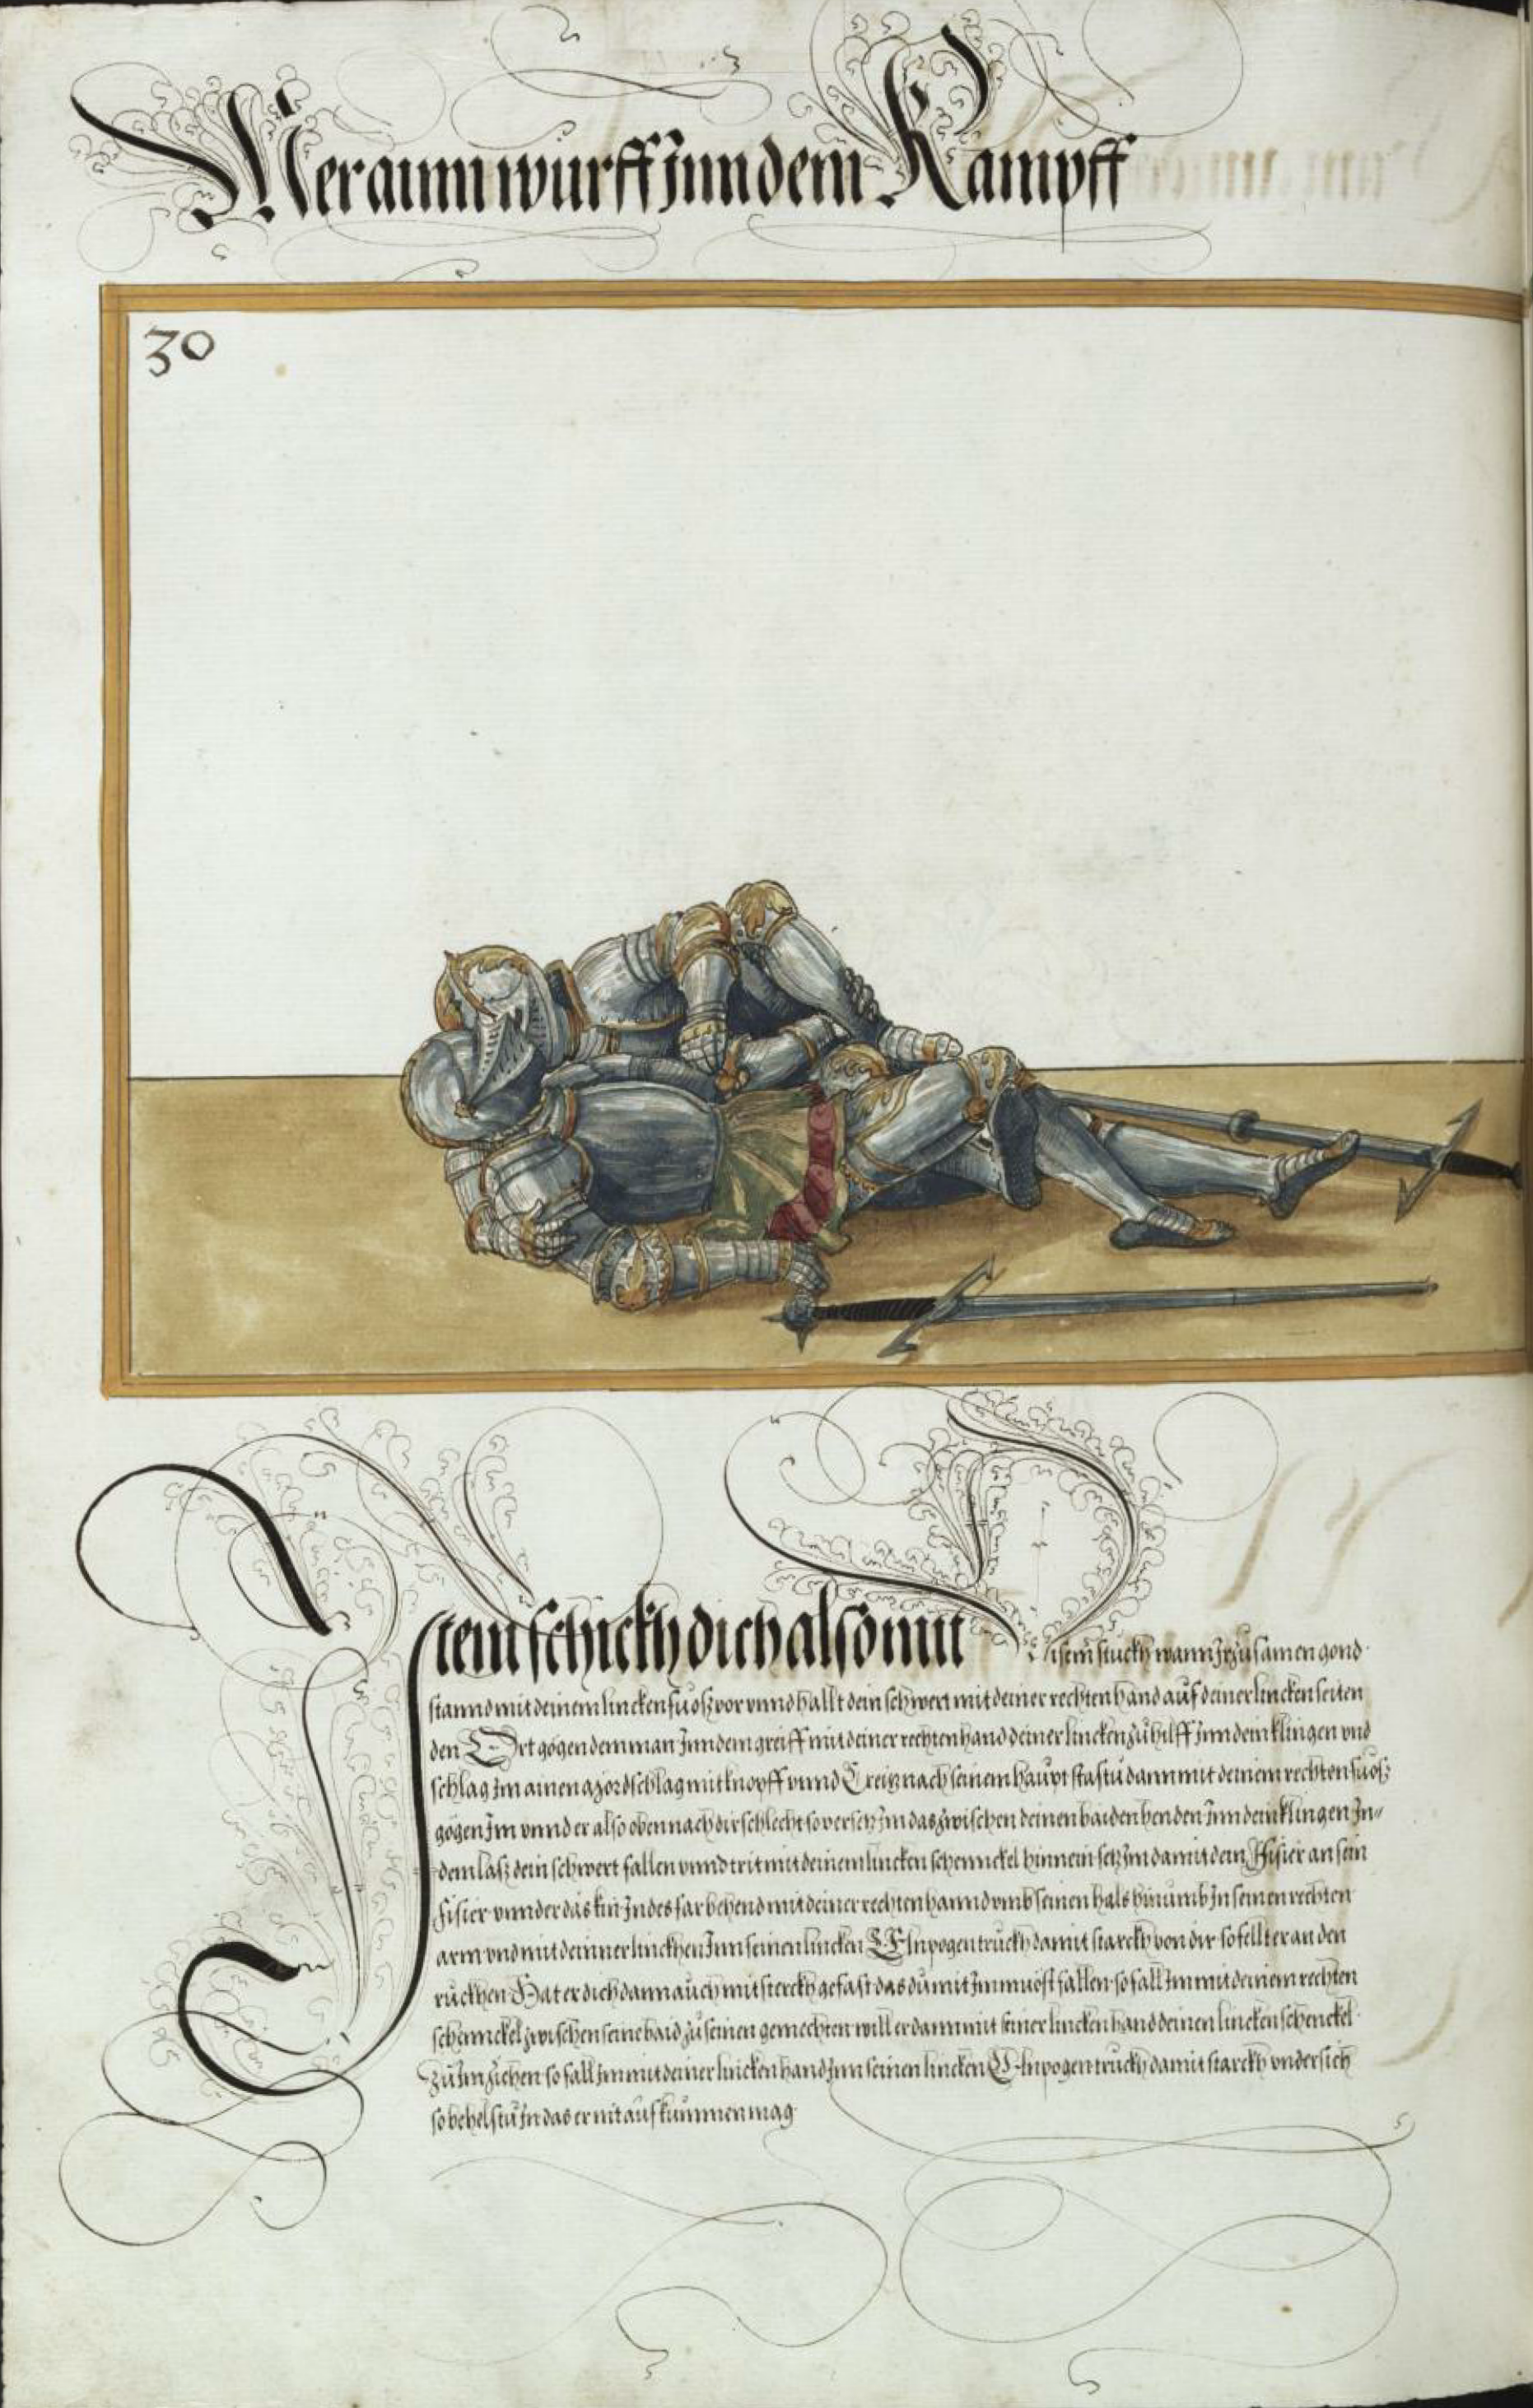 Mer ainn wurff Jnn dem Kampff
30
Jtem schickh dich also mit Disem stuckh wann Jr zusamen gond
stannd mit deinem lincken fuosz vor vnnd hallt dein schwert mit deiner rechten hand auf deiner lincken seiten
den Ort gögen dem man Jnn dem greiff mit deiner rechten hand deiner lincken zu hilff Jnn dein klingen vnd
schlag Jm ainen mordschlag mit knopff vnnd Creitz nach seinem haupt stastu dann mit deinem rechten fuosz
gögen Jm vnnd er also oben nach dir schlecht so versetz Jm das zwischen deinen baiden henden Jnn dein klingen Jn
dem lasz dein schwert fallen vnnd trit mit deinem lincken schennckel hinnein setz Jm damit dein Fisier an sein
fisier vnnder das kin Jndes far behend mit deiner rechten hannd vmb seinen hals hinumb Jn seinen rechten
arm vnd mit deinner linckhen Jnn seinen lincken Elnpogen truckh damit starckh von dir so fellt er an den
ruckhen Hat er dich dann auch mit sterckh gefast das du mit Jm muost fallen so fall Jm mit deinem rechten
schennckel zwischen seine baid zu seinen gemechten will er dann mit seiner lincken hand deinen lincken schenckel
zu Jm ziehen so fall Jm mit deiner lincken hand Jnn seinen lincken Elnpogen truckh damit starckh vndersich
so behelstu Jn das er nit auf kummen mag